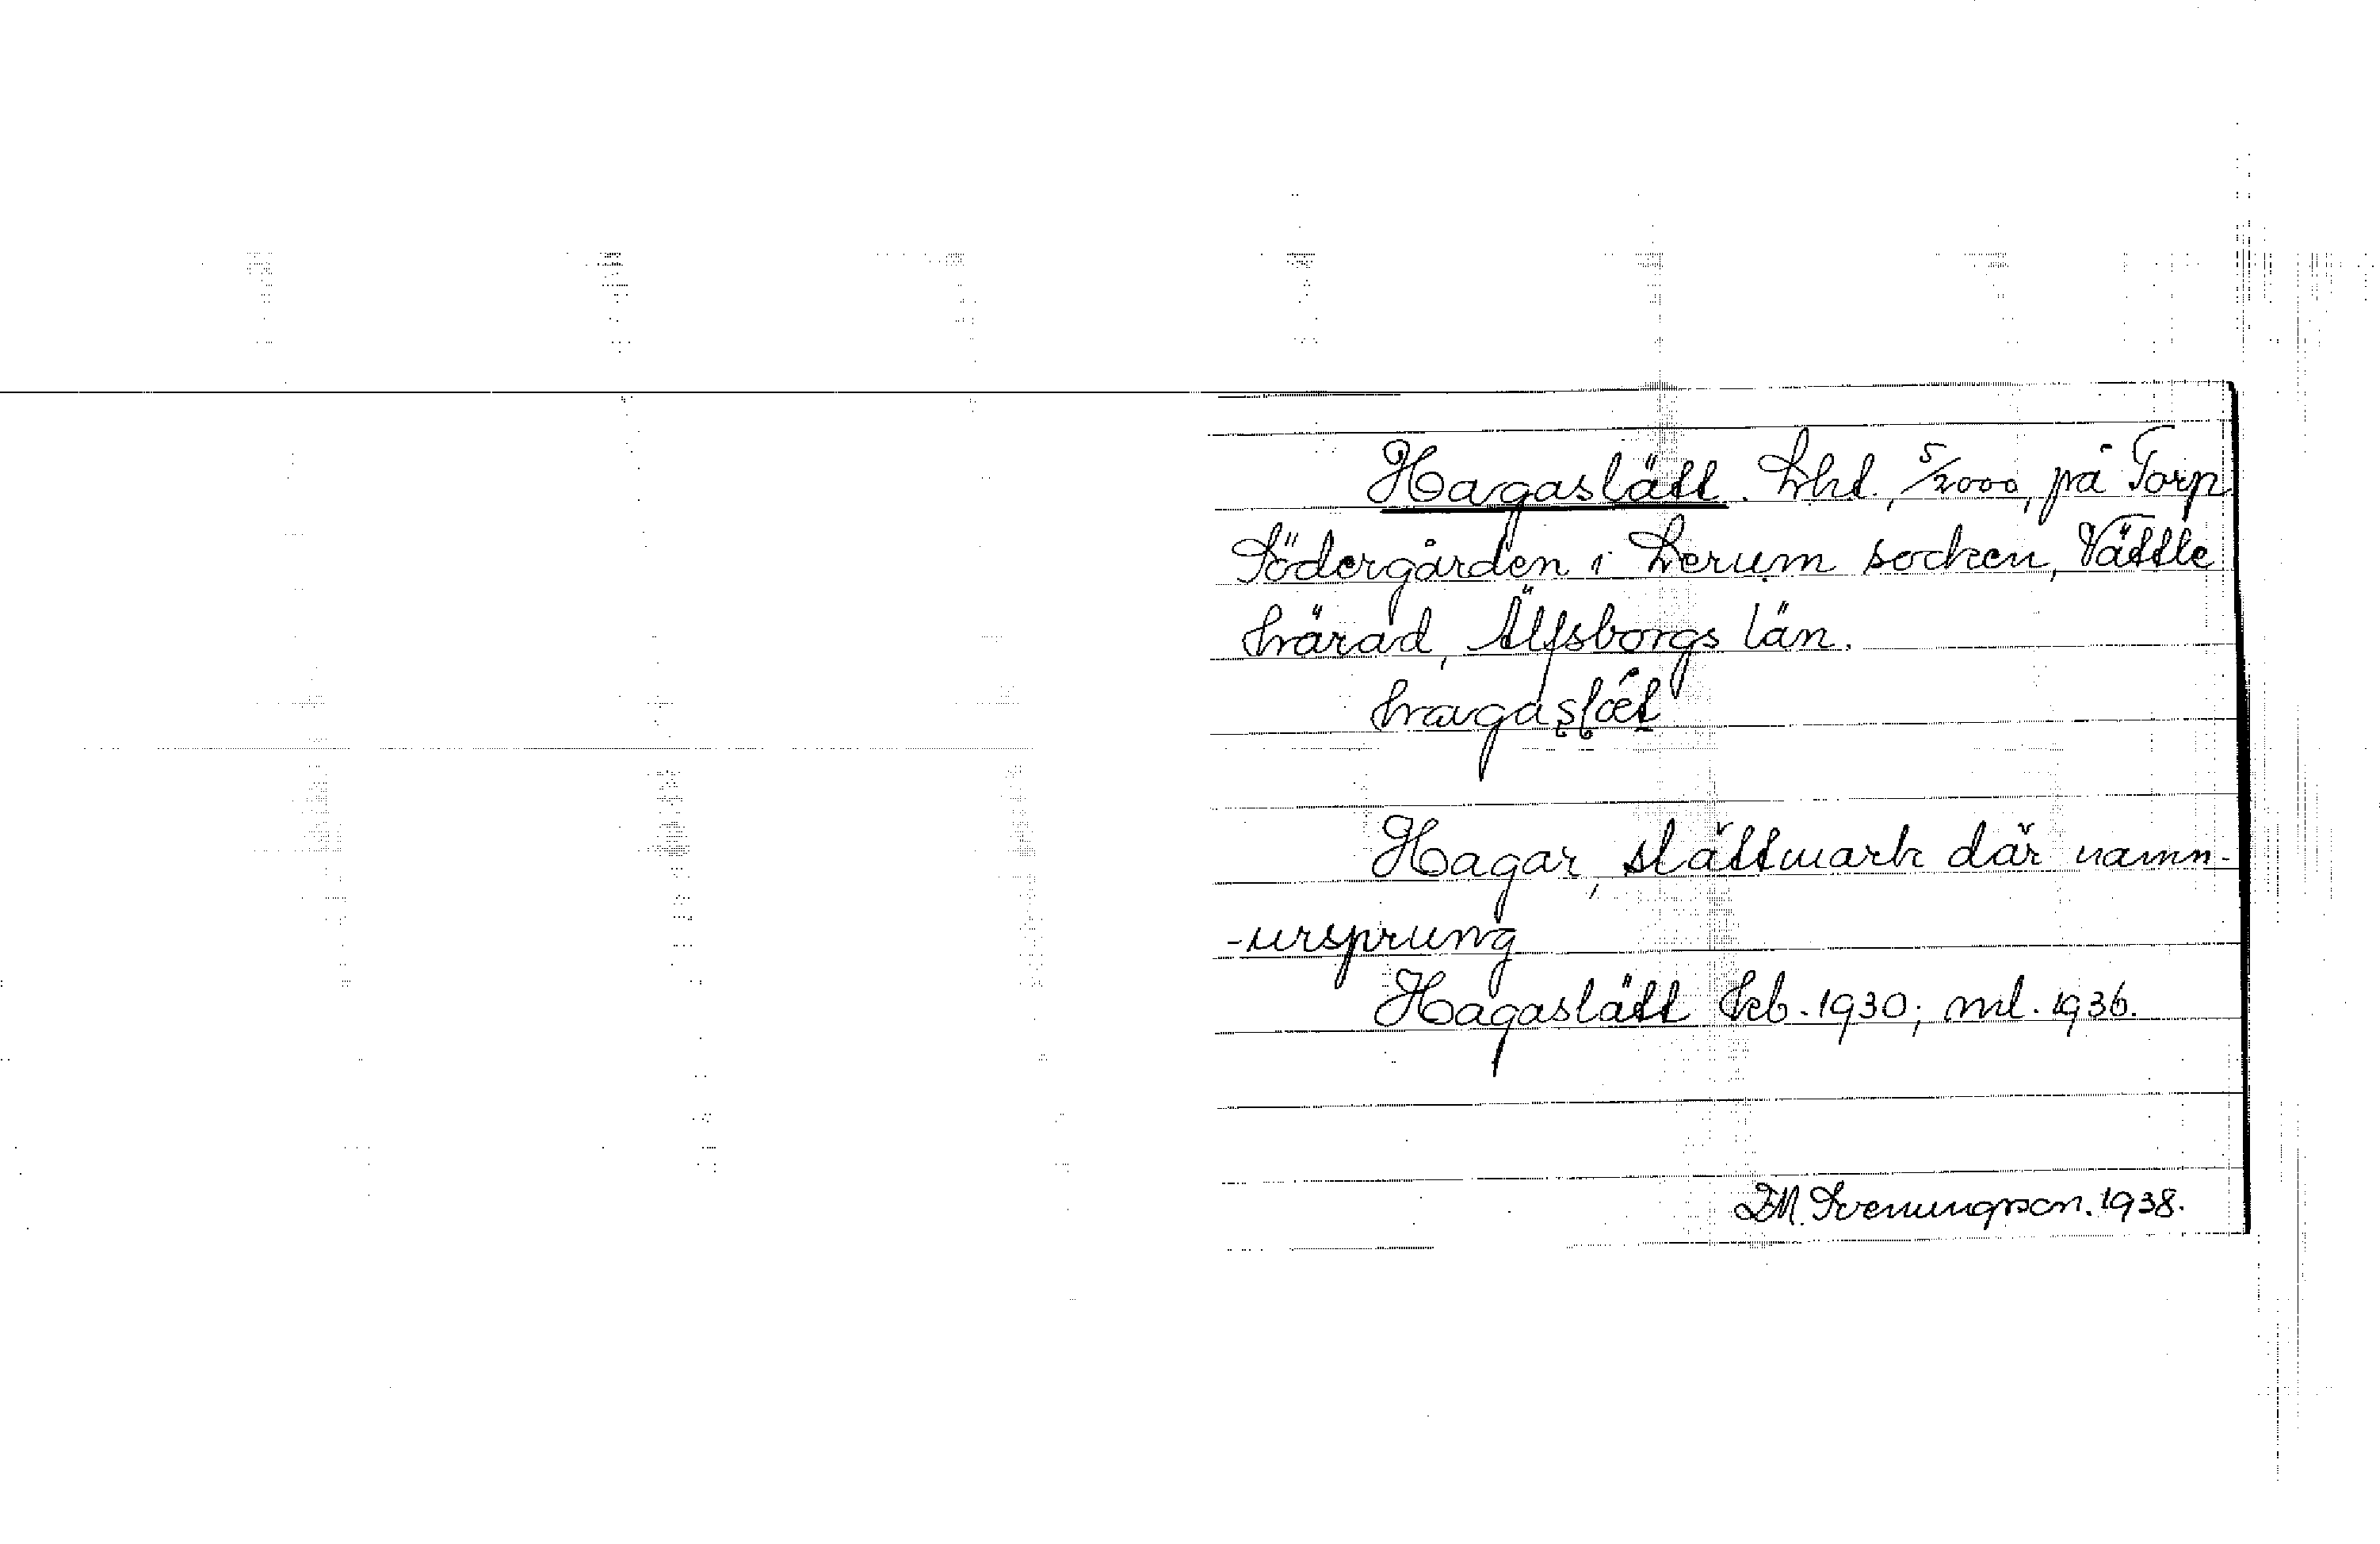 Hagaslätt. Lht., 5/2000, på Torp
Södergården i Lerum socken, Vättle
härad, Älfsborgs län.
hagaslæt
Hagar, slättmark där namn-
-ursprung
Hagaslätt Jeb. 1930; ml. 1936.
D.M. Svenungsson. 1938.